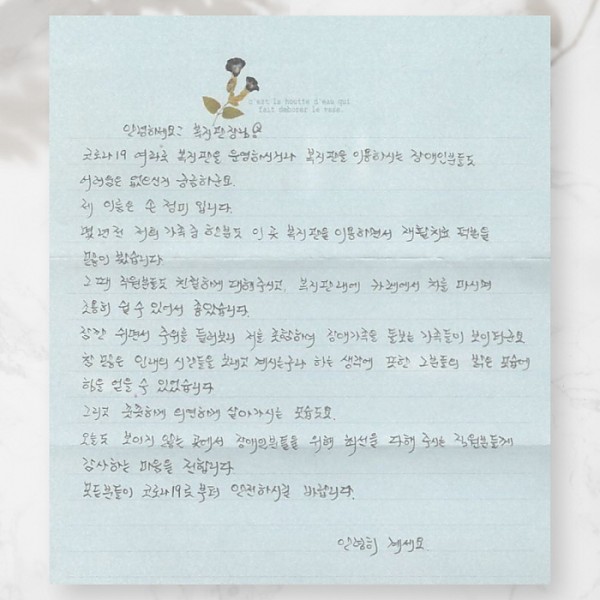 c'est la goutte d'eau qui
fait déborder le vase.
안녕하세요? 복지관장님
코로나19 여파로 복지관을 운영하시거나 복지관을 이용하시는 장애인분들도
어려움은 없으신지 궁금하군요.
제 이름은 손 정미 입니다.
몇년전 저희 가족중 한분도 이 곳 복지관을 이용하면서 재활치료 덕분을
많이 봤습니다
그 때 직원분들도 친절하게 대해주시고, 복지관내에 카페에서 차를 마시며
조용히 쉴 수 있어서 좋았습니다.
잠깐 쉬면서 주위를 둘러보니 저를 포함하여 장애가족을 돌보는 가족들이 보이더군요
참 많은 인내의 시간들을 보내고 계시는구나 하는 생각에 또한 그분들의 밝은 모습에
힘을 얻을 수 있었습니다
그리고 꿋꿋하게 의연하게 살아가시는 모습도요.
오늘도 보이지 않는 곳에서 장애인분들을 위해 최선을 다해 주시는 직원분들께
감사하는 마음을 전합니다.
모든분들이 코로나19로부터 안전하시길 바랍니다.
안녕히 계세요